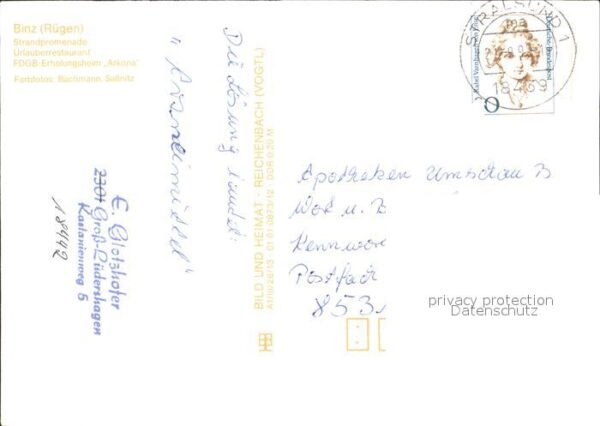 Binz (Rügen)
Strandpromenade
Urlauberrestaurant
FDGB-Erholungsheim „Arkona"
Farbfotos: Bachmann, Saßnitz
Die Lösung lautet:
„Arzneimittel"
E. Glotzhofer
2301 Groß-Lüdershagen
Kastanienweg 6
18442
BILD UND HEIMAT · REICHENBACH (VOGTL)
A1/1026/13 01 01 0873/12 DDR 0,20 M
STRALSUND 1
18439
Deutsche Bundespost
Apotheken Umschau B
Wort u. B
Kennwor
Postfach
853
privacy protection
Datenschutz